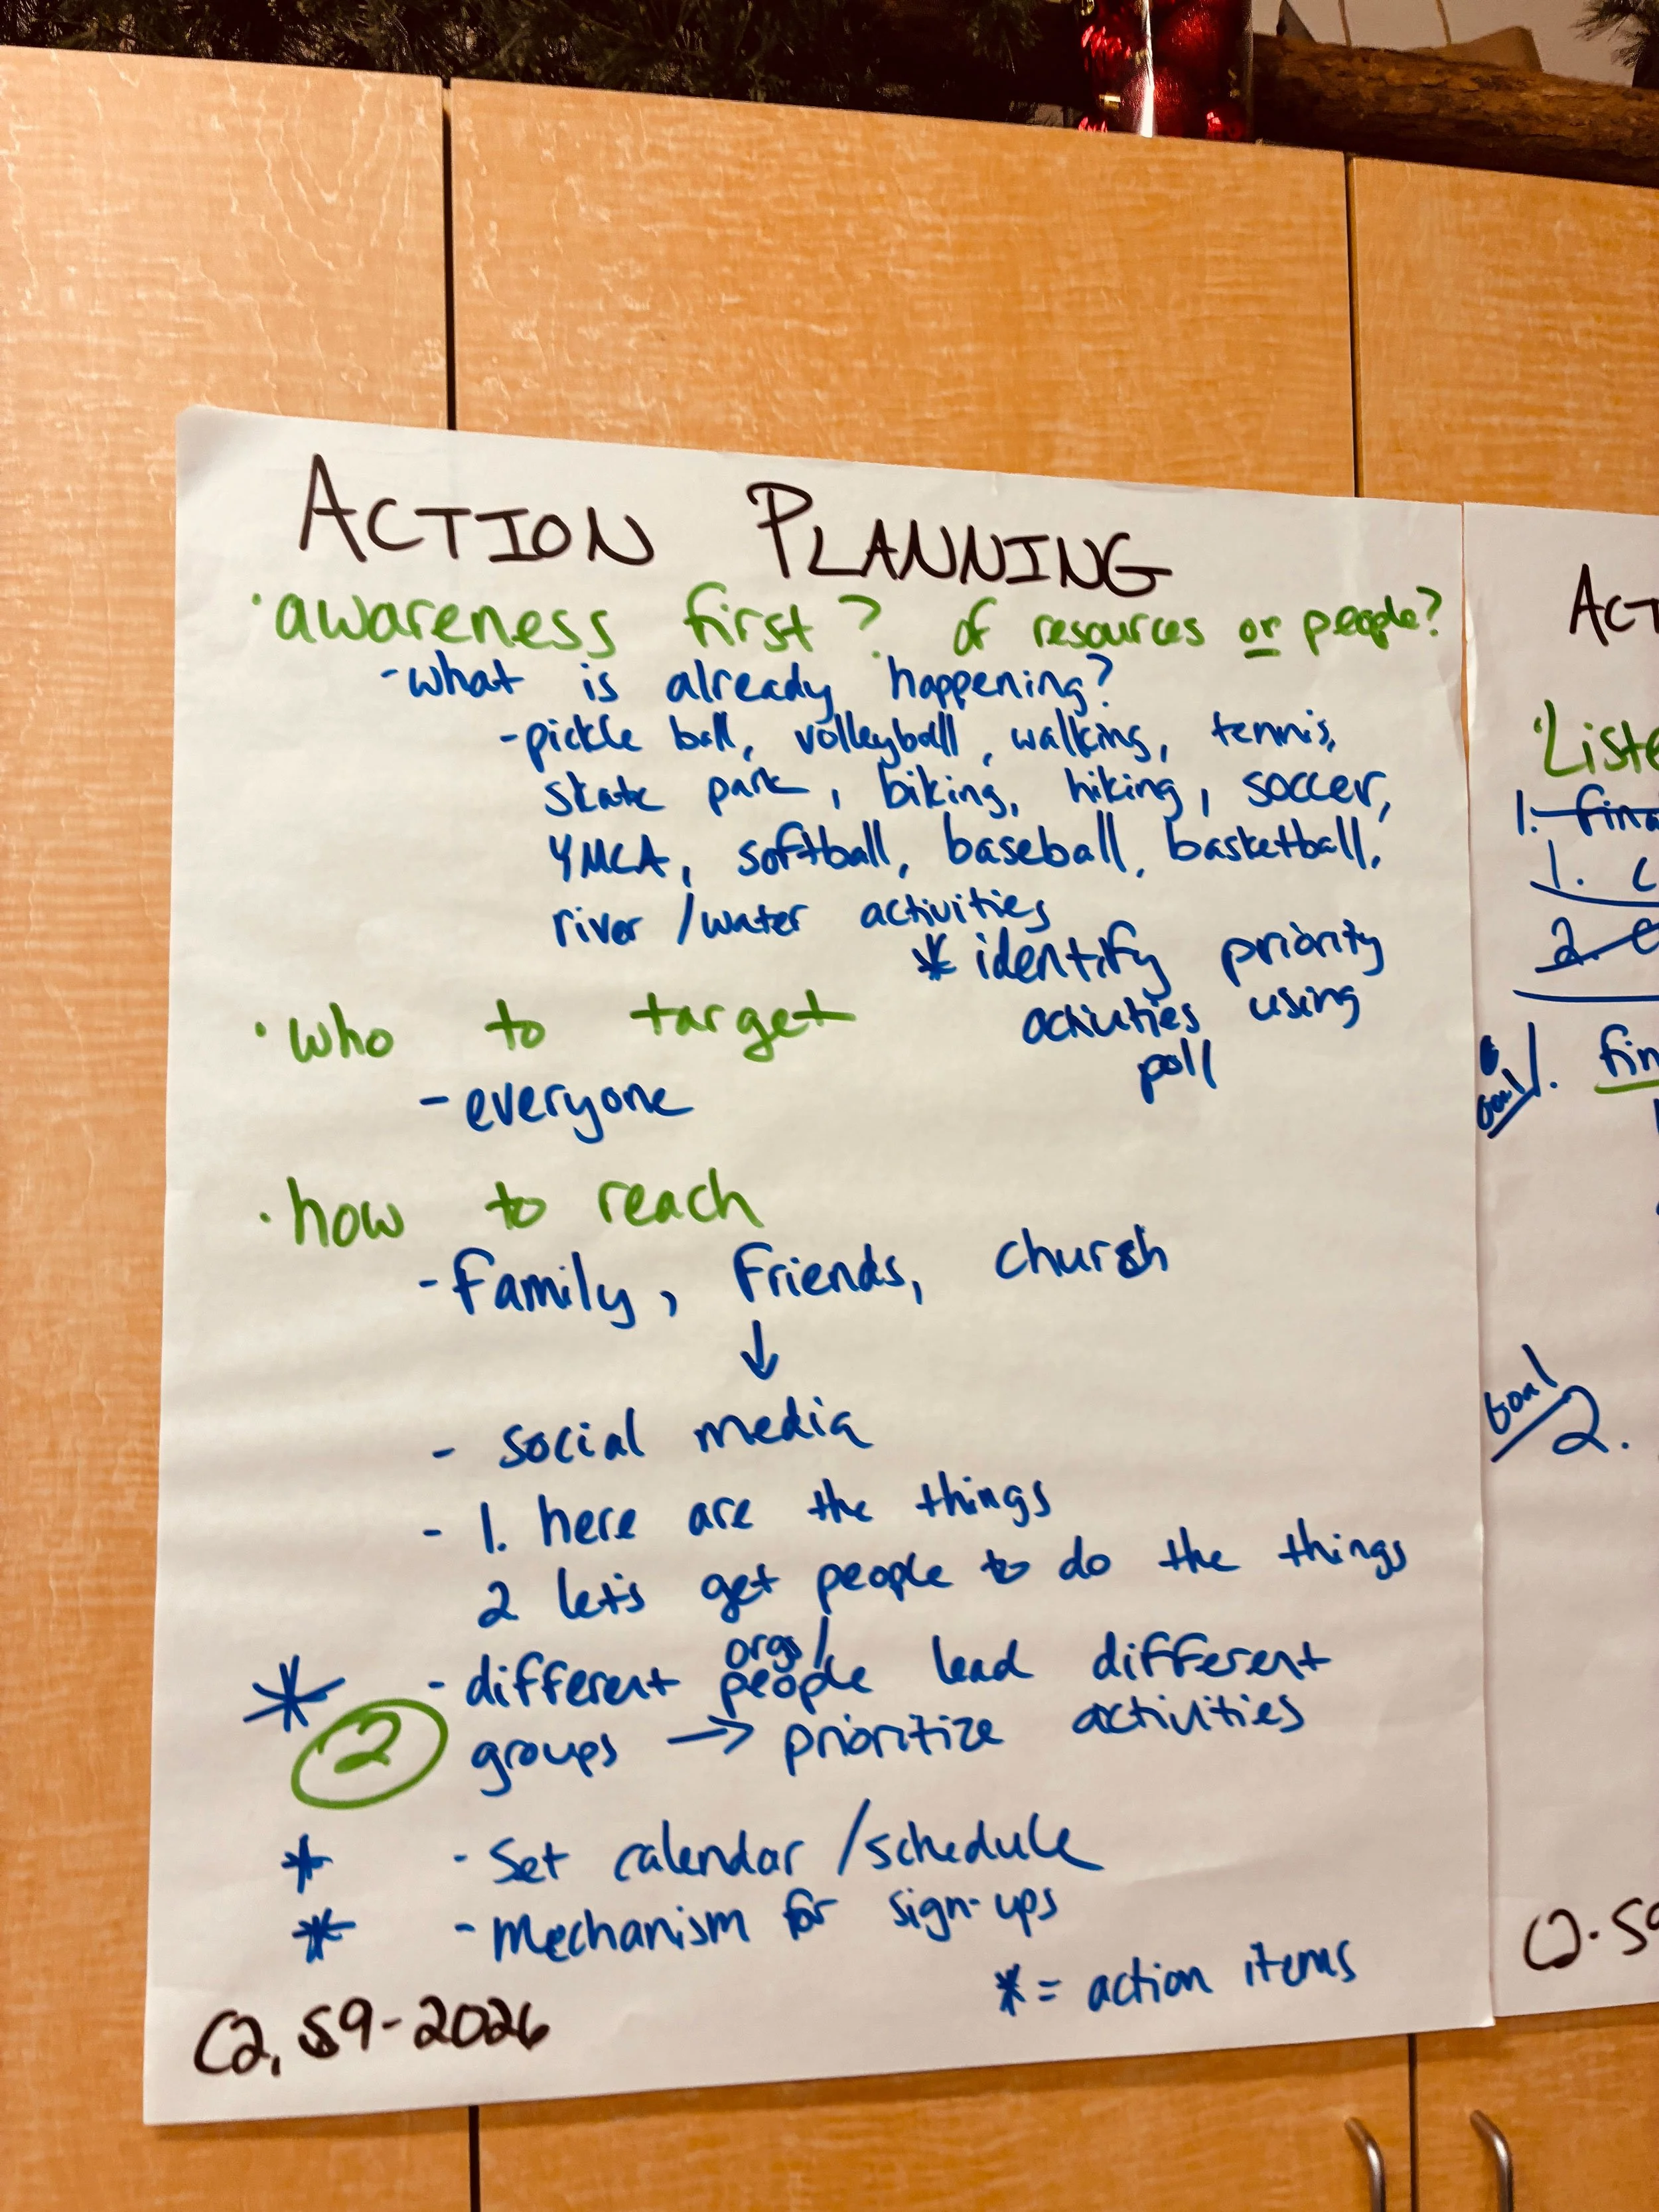 ACTION PLANNING
· awareness first? of resources or people?
- what is already happening?
- pickle ball, volleyball, walking, tennis,
skate park, biking, hiking, soccer,
YMCA, softball, baseball, basketball,
river / water activities
* identify priority
activities using
poll
· who to target
- everyone
· how to reach
- family, friends, church
↓
- social media
- 1. here are the things
2 let's get people to do the things
orgs/
* - different people lead different
2 groups → prioritize activities
* - Set calendar / schedule
* - Mechanism for sign-ups
* = action items
C2, S9-2026
ACT
· Liste
1. fina
1. C
2. e
Goal 1. fin
Goal 2.
C2. S9